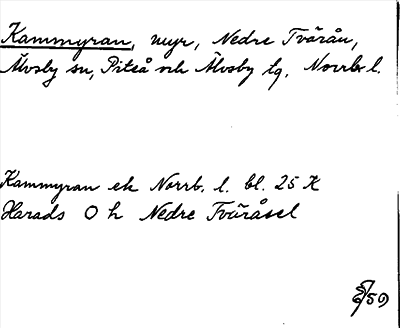 Kammyran, myr, Nedre Tvärån,
Älvsby sn, Piteå och Älvsby tg, Norrb l.
Kammyran ek Norrb. l. bl. 25 K
Harads O h Nedre Tväråsel
/59